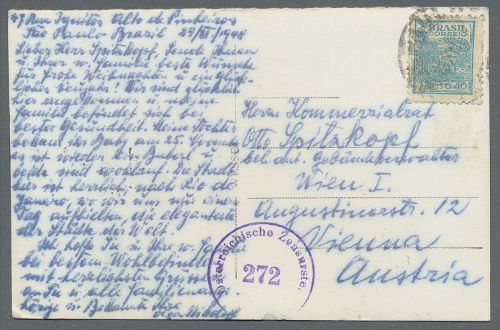 47 Rua Ignatios Alto de Pinheiros
São Paulo Brazil 29/XI/1948
Lieber Herr Spitzkopf, Sende Ihnen
u Ihrer w. Familie beste Wünsche
für frohe Weihnachten u ein glück-
liches Neujahr! Wir sind glücklich
hier angekommen u meine
Familie befindet sich bei
bester Gesundheit. Meine Tochter
bekam ihr Baby am 25. Novemb.
es ist wieder ein Buberl u
beide sind wohlauf. Die Stadt
hier ist herrlich, nach Rio de
Janeiro, wo wir uns nur einen
Tag aufhielten, die eleganteste
der Städte der Welt.
Ich hoffe Sie u Ihre w. Familie
bei bestem Wohlbefinden
mit herzlichsten Grüssen
an Sie u alle Familienange-
hörige u Bekannte Ihre
Olga
BRASIL
CORREIO
0,40
Herrn Kommerzialrat
Otto Spitzkopf
beh. aut. Gebäudeverwalter
Wien I.
Augustinerstr. 12
Vienna
Austria
Österreichische Zensurste.
272